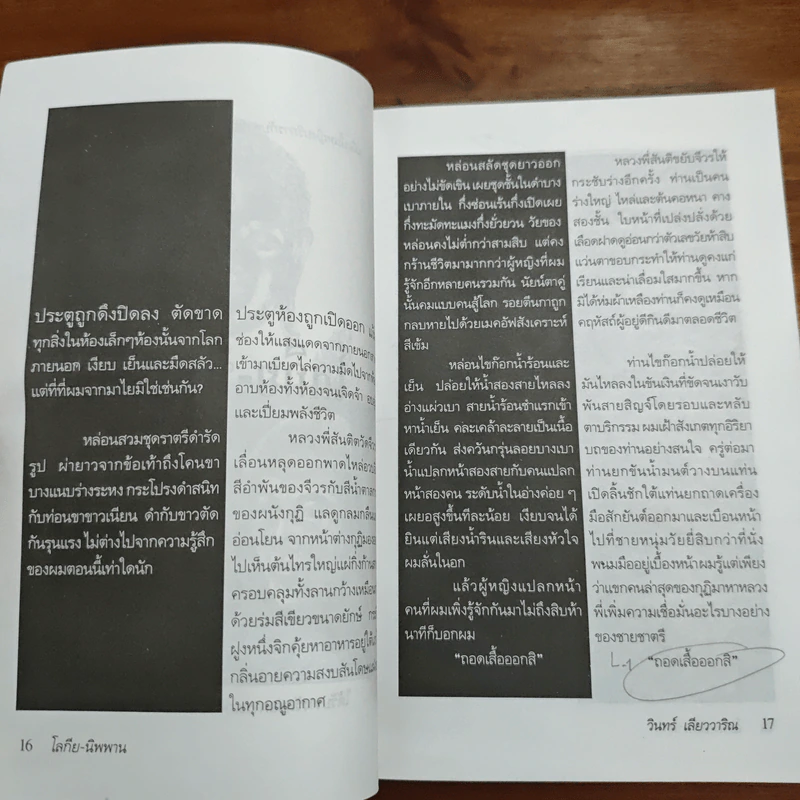 ประตูถูกดึงปิดลง ตัดขาด
ทุกสิ่งในห้องเล็กๆห้องนั้นจากโลก
ภายนอก เงียบ เย็นและมืดสลัว...
แต่ที่ที่ผมจากมาไยมิใช่เช่นกัน?
หล่อนสวมชุดราตรีดำรัด
รูป ผ่ายาวจากข้อเท้าถึงโคนขา
บางแนบร่างระหง กระโปรงดำสนิท
กับท่อนขาขาวเนียน ดำกับขาวตัด
กันรุนแรง ไม่ต่างไปจากความรู้สึก
ของผมตอนนี้เท่าใดนัก
ประตูห้องถูกเปิดออก
ช่องให้แสงแดดจากภายนอก
เข้ามาเบียดไล่ความมืดไปจาก
อาบห้องทั้งห้องจนเจิดจ้า
และเปี่ยมพลังชีวิต
หลวงพี่สันติตวัดจีวร
เลื่อนหลุดออกพาดไหล่
สีอำพันของจีวรกับสีน้ำตาล
ของผนังกุฏิ แลดูกลมกลืน
อ่อนโยน จากหน้าต่างกุฏิ
ไปเห็นต้นไทรใหญ่แผ่กิ่งก้าน
ครอบคลุมทั้งลานกว้างเหมือน
ด้วยร่มสีเขียวขนาดยักษ์
ฝูงหนึ่งจิกคุ้ยหาอาหารอยู่ใต้
กลิ่นอายความสงบสันโดษ
ในทุกอณูอากาศ
16 โลกีย-นิพพาน
หล่อนสลัดชุดยาวออก
อย่างไม่ขัดเขิน เผยชุดชั้นในดำบาง
เบาภายใน กึ่งซ่อนเร้นกึ่งเปิดเผย
กึ่งทะมัดทะแมงกึ่งยั่วยวน วัยของ
หล่อนคงไม่ต่ำกว่าสามสิบ แต่คง
กร้านชีวิตมามากกว่าผู้หญิงที่ผม
รู้จักอีกหลายคนรวมกัน นัยน์ตาคู่
นั้นคมแบบคนสู้โลก รอยตีนกาถูก
กลบหายไปด้วยเมคอัพสังเคราะห์
สีเข้ม
หล่อนไขก๊อกน้ำร้อนและ
เย็น ปล่อยให้น้ำสองสายไหลลง
อ่างแผ่วเบา สายน้ำร้อนชำแรกเข้า
หาน้ำเย็น คละเคล้าละลายเป็นเนื้อ
เดียวกัน ส่งควันกรุ่นลอยบางเบา
น้ำแปลกหน้าสองสายกับคนแปลก
หน้าสองคน ระดับน้ำในอ่างค่อย ๆ
เผยอสูงขึ้นทีละน้อย เงียบจนได้
ยินแต่เสียงน้ำรินและเสียงหัวใจ
ผมลั่นในอก
แล้วผู้หญิงแปลกหน้า
คนที่ผมเพิ่งรู้จักกันมาไม่ถึงสิบห้า
นาทีก็บอกผม
“ถอดเสื้อออกสิ”
หลวงพี่สันติขยับจีวรให้
กระชับร่างอีกครั้ง ท่านเป็นคน
ร่างใหญ่ ไหล่และต้นคอหนา คาง
สองชั้น ใบหน้าที่เปล่งปลั่งด้วย
เลือดฝาดดูอ่อนกว่าตัวเลขวัยห้าสิบ
แว่นตาขอบกระทำให้ท่านดูคงแก่
เรียนและน่าเลื่อมใสมากขึ้น หาก
มิได้ห่มผ้าเหลืองท่านก็คงดูเหมือน
คฤหัสถ์ผู้อยู่ดีกินดีมาตลอดชีวิต
ท่านไขก๊อกน้ำปล่อยให้
มันไหลลงในขันเงินที่ขัดจนเงาวับ
พันสายสิญจ์โดยรอบและหลับ
ตาบริกรรม ผมเฝ้าสังเกตทุกอิริยา
บถของท่านอย่างสนใจ ครู่ต่อมา
ท่านยกขันน้ำมนต์วางบนแท่น
เปิดลิ้นชักใต้แท่นยกถาดเครื่อง
มือสักยันต์ออกมาและเบือนหน้า
ไปที่ชายหนุ่มวัยยี่สิบกว่าที่นั่ง
พนมมืออยู่เบื้องหน้าผมรู้แต่เพียง
ว่าแขกคนล่าสุดของกุฏิมาหาหลวง
พี่เพิ่มความเชื่อมั่นอะไรบางอย่าง
ของชายชาตรี
“ถอดเสื้อออกสิ”
วินทร์ เลียววาริณ 17